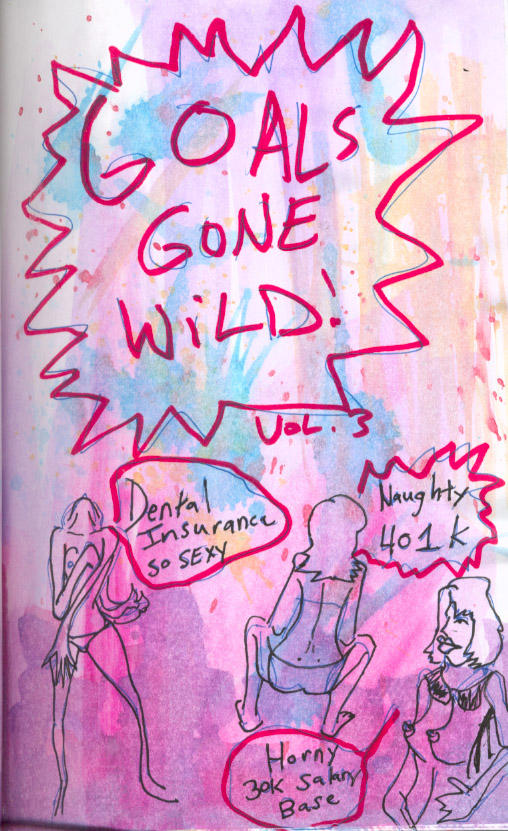 GOALS
GONE
WiLD!
VOL. 3
Dental
Insurance
so SEXY
Naughty
401k
Horny
30k Salary
Base